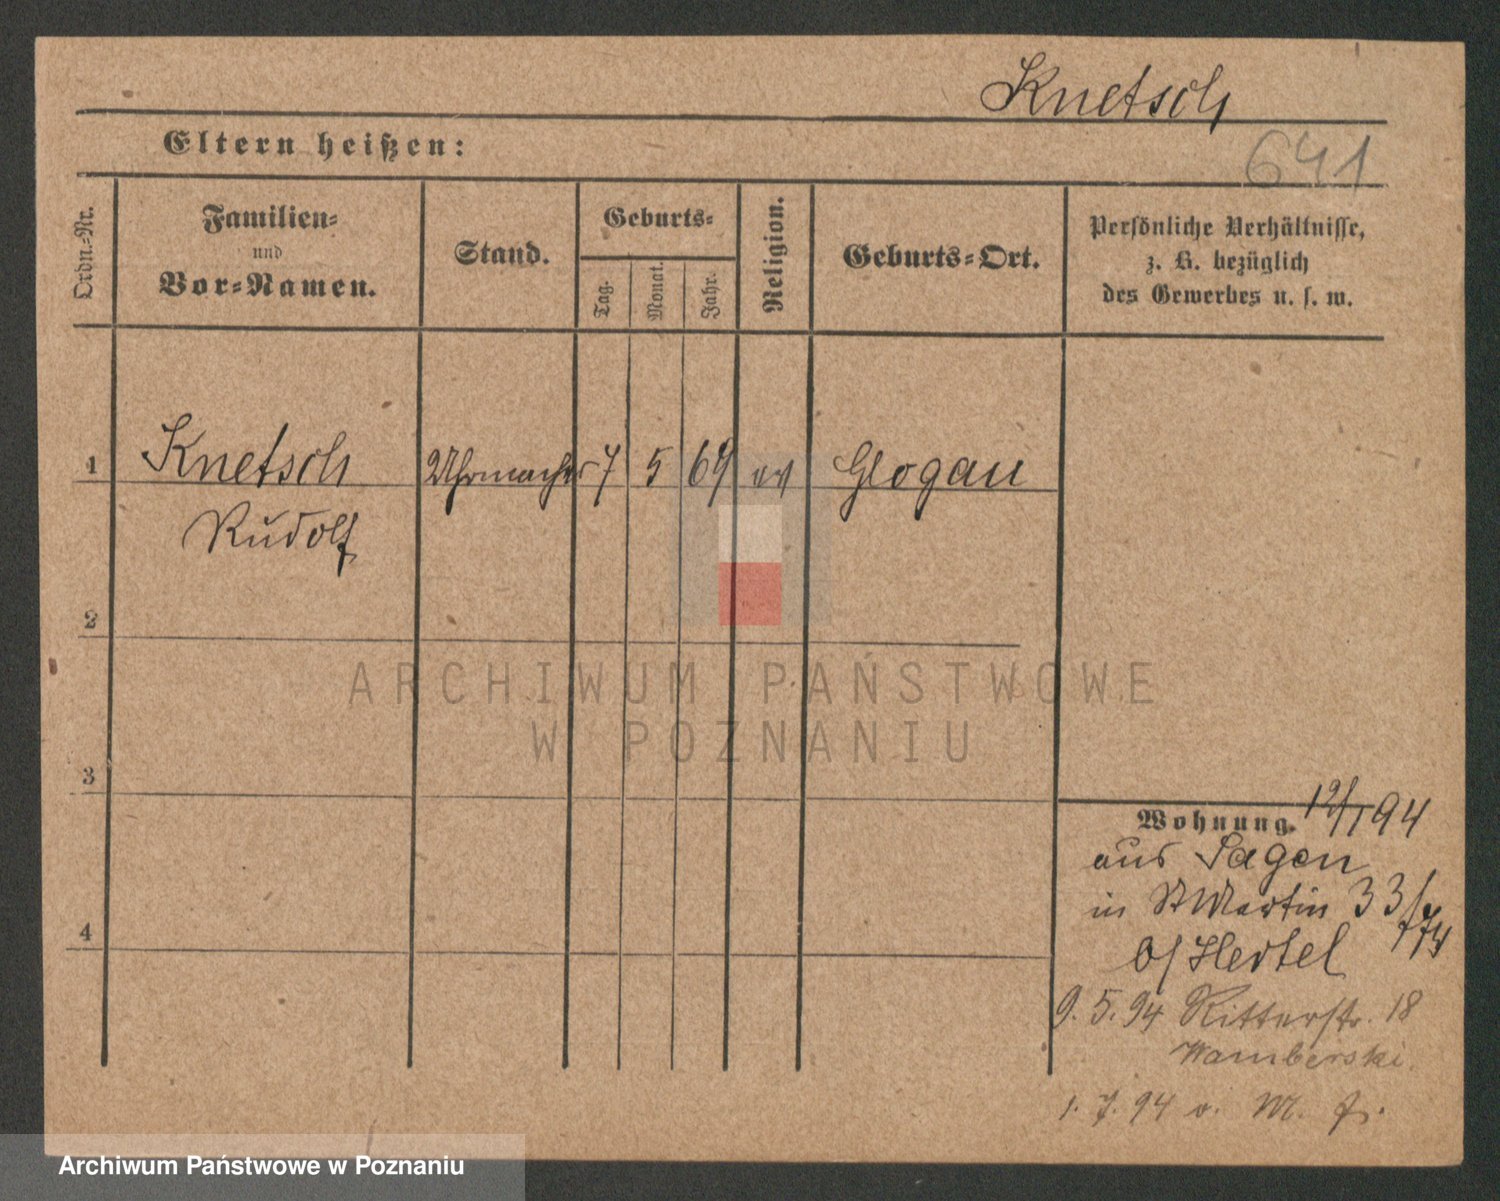 Knetsch
641
Eltern heißen:
Ordn.=Nr.
Familien=
und
Vor=Namen.
Stand.
Geburts=
Tag.
Monat.
Jahr.
Religion.
Geburts=Ort.
Persönliche Verhältnisse,
z. B. bezüglich
des Gewerbes u. s. w.
1 Knetsch Uhrmacher 7 5 69 ev Glogau
Rudolf
2
3
4
Wohnung. 12/1 94
aus Sagan
in St Martin 33/
b/ Hertel
9. 5. 94 Ritterstr. 18
Wamberski.
1. 7. 94 v. M.
ARCHIWUM PAŃSTWOWE
W POZNANIU
Archiwum Państwowe w Poznaniu